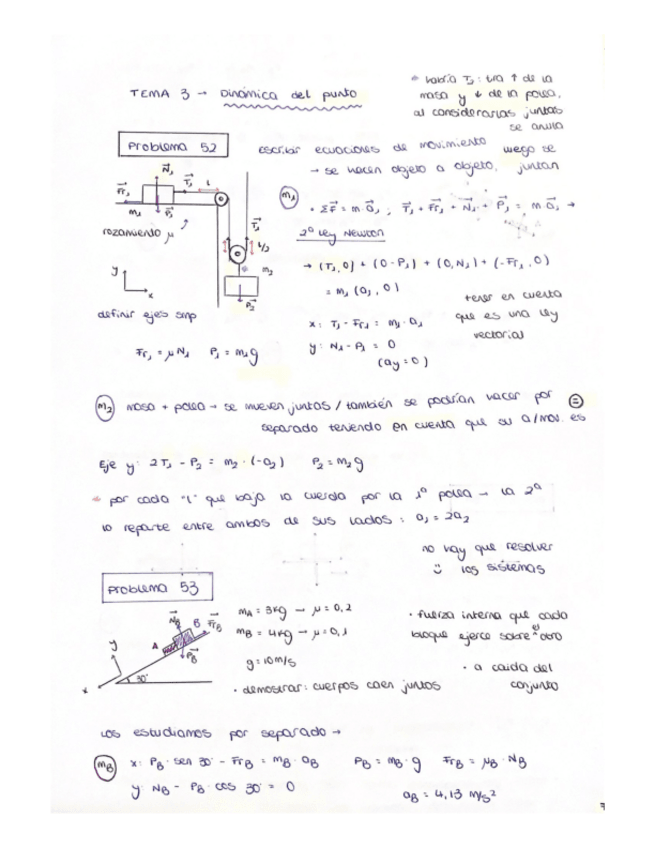 * habría T₁: tira ↑ de la
masa y ↓ de la polea,
al considerarlas juntas
se anula
TEMA 3 → Dinámica del punto
Problema 52
escribir ecuaciones de movimiento luego se
→ se hacen objeto a objeto, juntan
N₁
Fr₁
T₁
L
m₁
P₁
rozamiento μ
T₁
L/2
m₂
P₂
y
x
definir ejes smp
Fr₁ = μN₁ P₁ = m₁g
m₁
• ΣF = m·a₁ ; T₁ + Fr₁ + N₁ + P₁ = m a₁ →
2º Ley Newton
→ (T₁, 0) + (0 - P₁) + (0, N₁) + (-Fr₁, 0)
= m₁ (a₁, 0)
x: T₁ - Fr₁ = m₁·a₁
y: N₁ - P₁ = 0
(ay = 0)
tener en cuenta
que es una ley
vectorial
m₂ masa + polea → se mueven juntas / también se podrían hacer por
separado teniendo en cuenta que su a/mov. es =
Eje y: 2T₁ - P₂ = m₂·(-a₂) P₂ = m₂g
* por cada "L" que baja la cuerda por la 1ª polea → la 2ª
lo reparte entre ambos de sus lados: a₁ = 2a₂
no hay que resolver
los sistemas
Problema 53
N_B
B
Fr_B
A
P_B
y
x
30°
m_A = 3kg → μ = 0,2
m_B = 4kg → μ = 0,1
g = 10 m/s
• demostrar: cuerpos caen juntos
• fuerza interna que cada
bloque ejerce sobre el otro
• a caída del
conjunto
Los estudiamos por separado →
m_B x: P_B·sen 30° - Fr_B = m_B·a_B P_B = m_B·g Fr_B = μ_B·N_B
y: N_B - P_B·cos 30° = 0 a_B = 4,13 m/s²